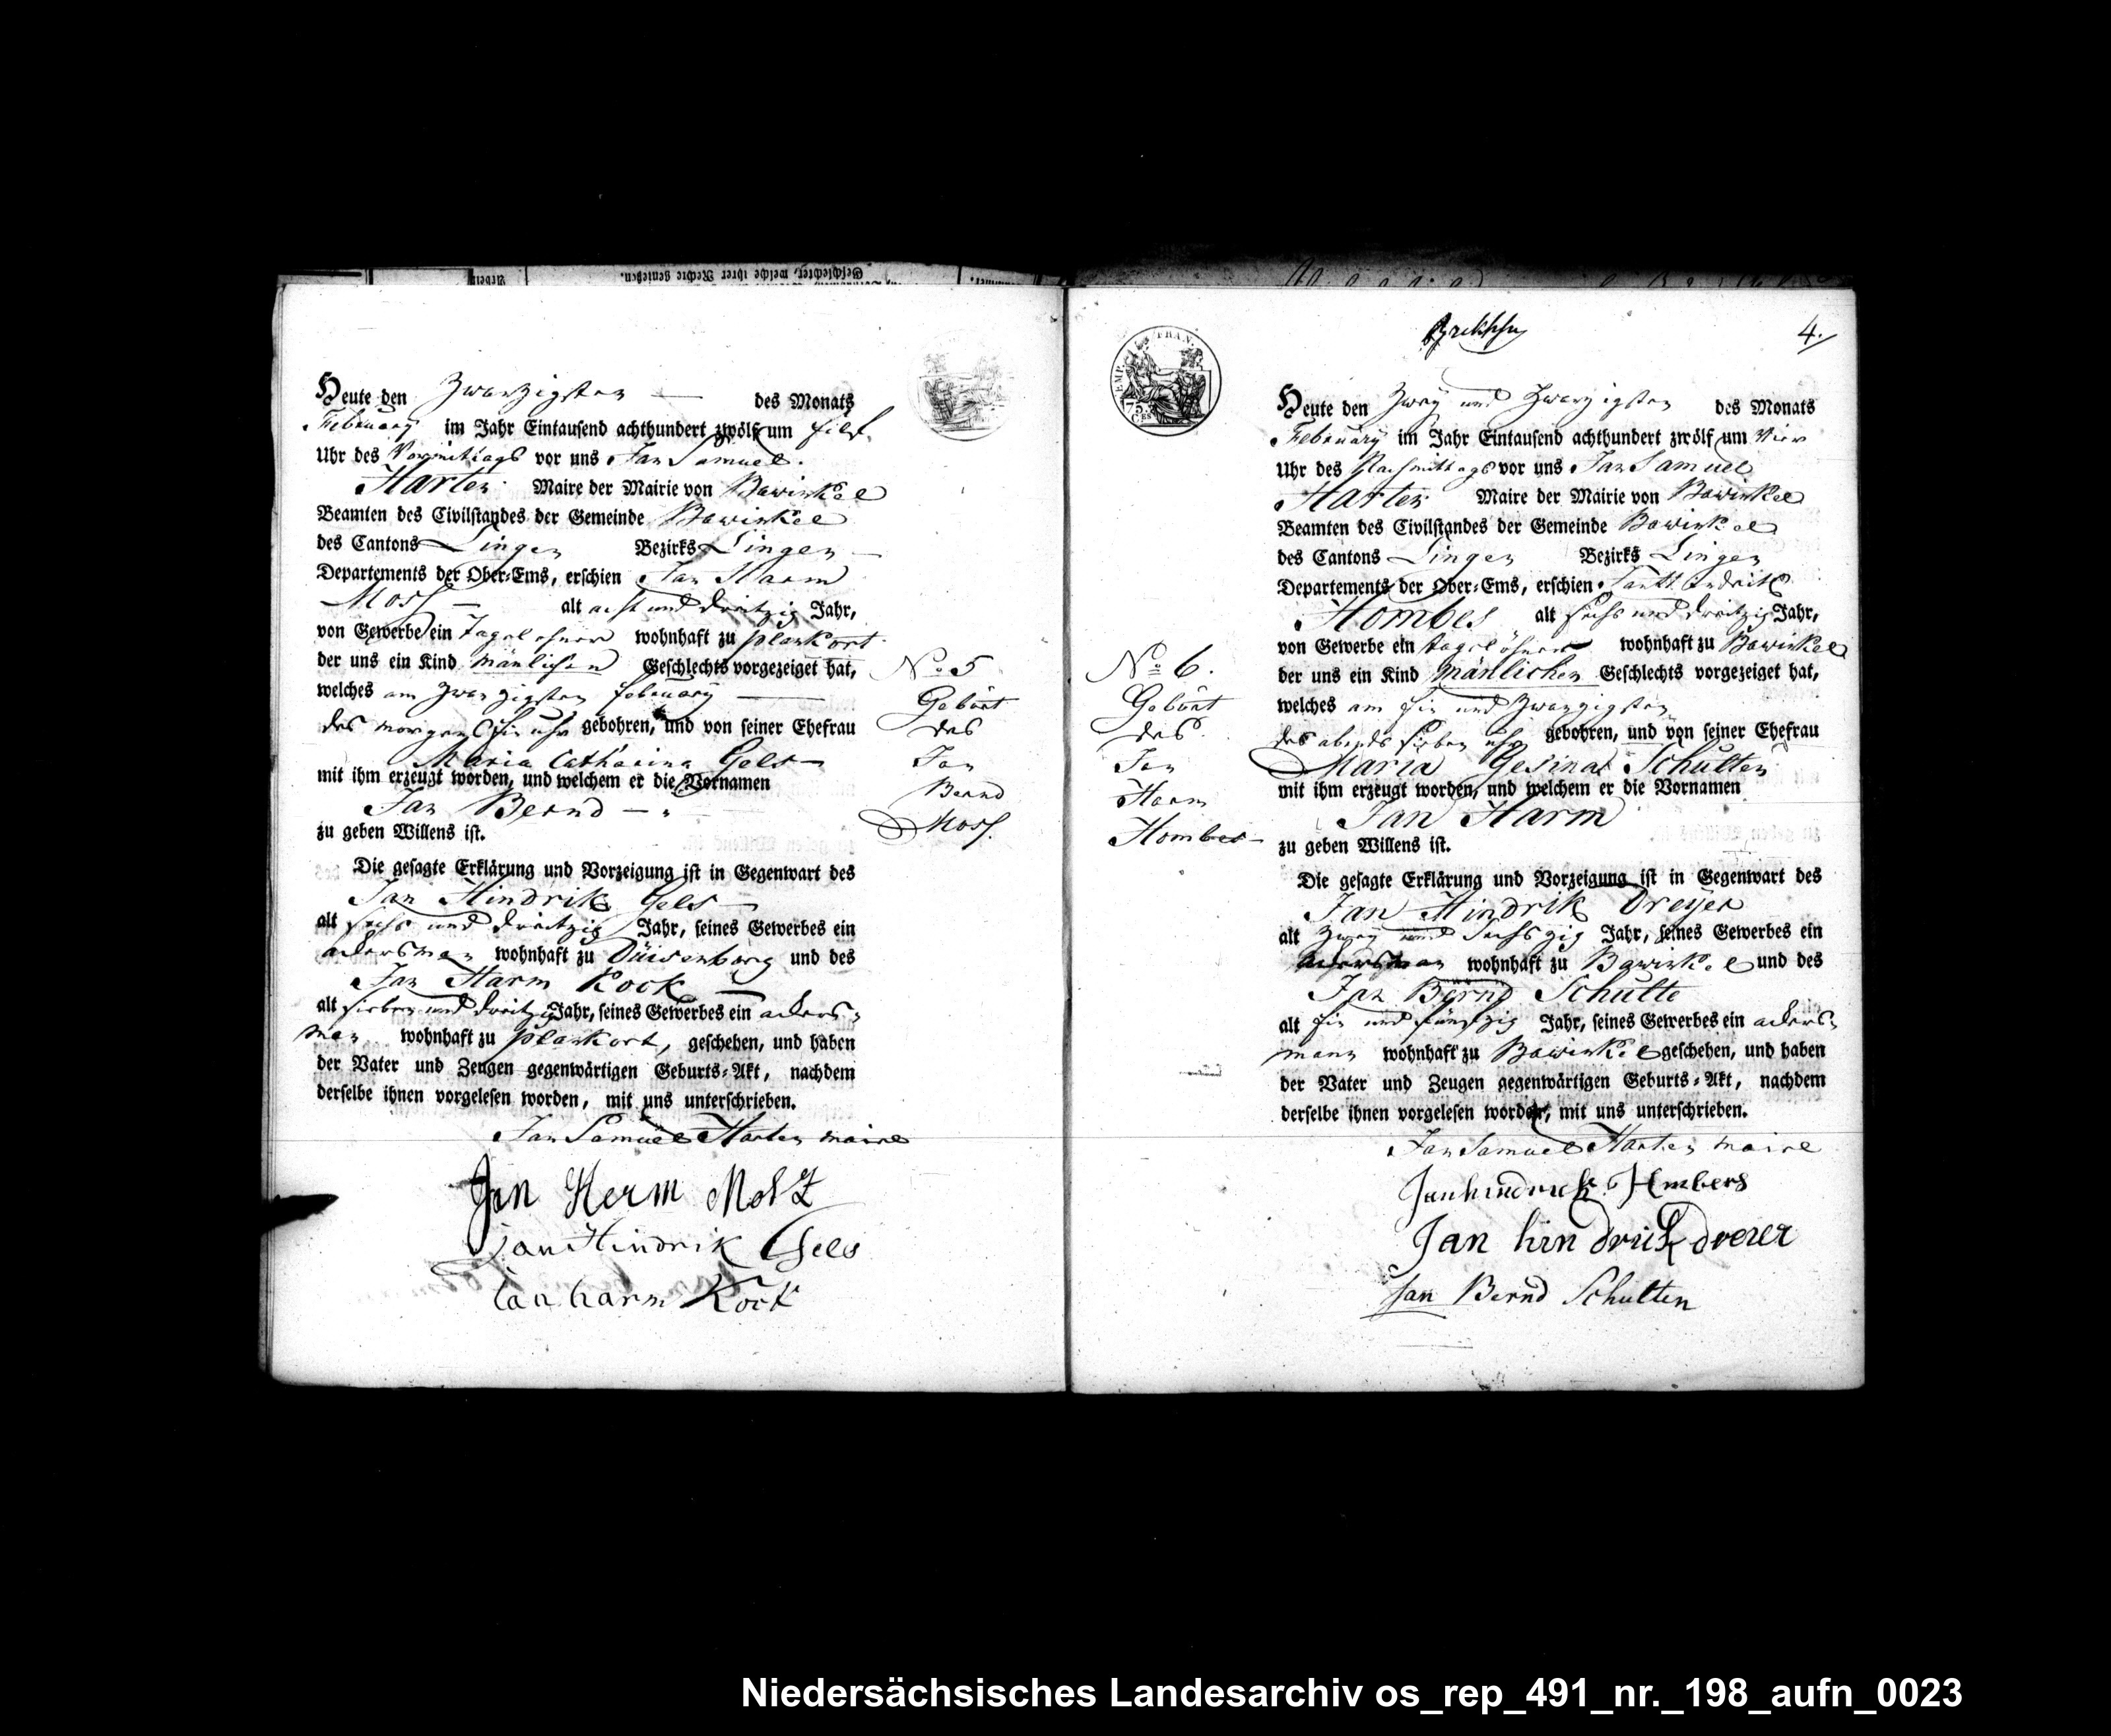 Heute den Zwanzigsten des Monats
February im Jahr Eintausend achthundert zwölf um Eilf
Uhr des Vormittags vor uns Jan Samuel
Harten Maire der Mairie von Bawinkel
Beamten des Civilstandes der Gemeinde Bawinkel
des Cantons Lingen Bezirks Lingen
Departements der Ober-Ems, erschien Jan Harm
Moss alt acht und dreitzig Jahr,
von Gewerbe ein Tagelohner wohnhaft zu plankort
der uns ein Kind mänlichen Geschlechts vorgezeiget hat,
welches am zwanzigsten february
des morgens uhr gebohren, und von seiner Ehefrau
Maria Catharina Gels
mit ihm erzeugt worden, und welchem er die Vornamen
Jan Bernd
zu geben Willens ist.
Die gesagte Erklärung und Vorzeigung ist in Gegenwart des
Jan Hindrik Gels
alt sechs und dreitzig Jahr, seines Gewerbes ein
ackersman wohnhaft zu Düisenborg und des
Jan Harm Kock
alt sieben und dreitzig Jahr, seines Gewerbes ein ackers-
man wohnhaft zu plankort, geschehen, und haben
der Vater und Zeugen gegenwärtigen Geburts-Akt, nachdem
derselbe ihnen vorgelesen worden, mit uns unterschrieben.
Jan Samuel Harten maire
Jan Herm
Jan Hindrik Gels
Jan harm Kock
No 5
Gebürt
des
Jan
Bernd
Moss.
4.
EMP. FRAN.
75.
Ces
No 6.
Gebürt
des
Jan
Harm
Hombes
Heute den Zweÿ und Zwanzigsten des Monats
February im Jahr Eintausend achthundert zwölf um Vier
Uhr des Nachmittags vor uns Jan Samuel
Harten Maire der Mairie von Bawinkel
Beamten des Civilstandes der Gemeinde Bawinkel
des Cantons Lingen Bezirks Lingen
Departements der Ober-Ems, erschien Jan Hindrik
Hombes alt sechs und dreitzig Jahr,
von Gewerbe ein tagelöhner wohnhaft zu Bawinkel
der uns ein Kind mänlichen Geschlechts vorgezeiget hat,
welches am ein und zwanzigsten
des abends sieben uhr gebohren, und von seiner Ehefrau
Maria Gesina Schulten
mit ihm erzeugt worden, und welchem er die Vornamen
Jan Harm
zu geben Willens ist.
Die gesagte Erklärung und Vorzeigung ist in Gegenwart des
Jan Hindrik Dreÿer
alt zweÿ und sechszig Jahr, seines Gewerbes ein
ackersman wohnhaft zu Bawinkel und des
Jan Bernd Schulte
alt ein und fünfzig Jahr, seines Gewerbes ein ackers-
mann wohnhaft zu Bawinkel geschehen, und haben
der Vater und Zeugen gegenwärtigen Geburts-Akt, nachdem
derselbe ihnen vorgelesen worden, mit uns unterschrieben.
Jan Samuel Harten maire
Janhindrick Hmbers
Jan hindrick dreier
Jan Bernd Schulten
Niedersächsisches Landesarchiv os_rep_491_nr._198_aufn_0023